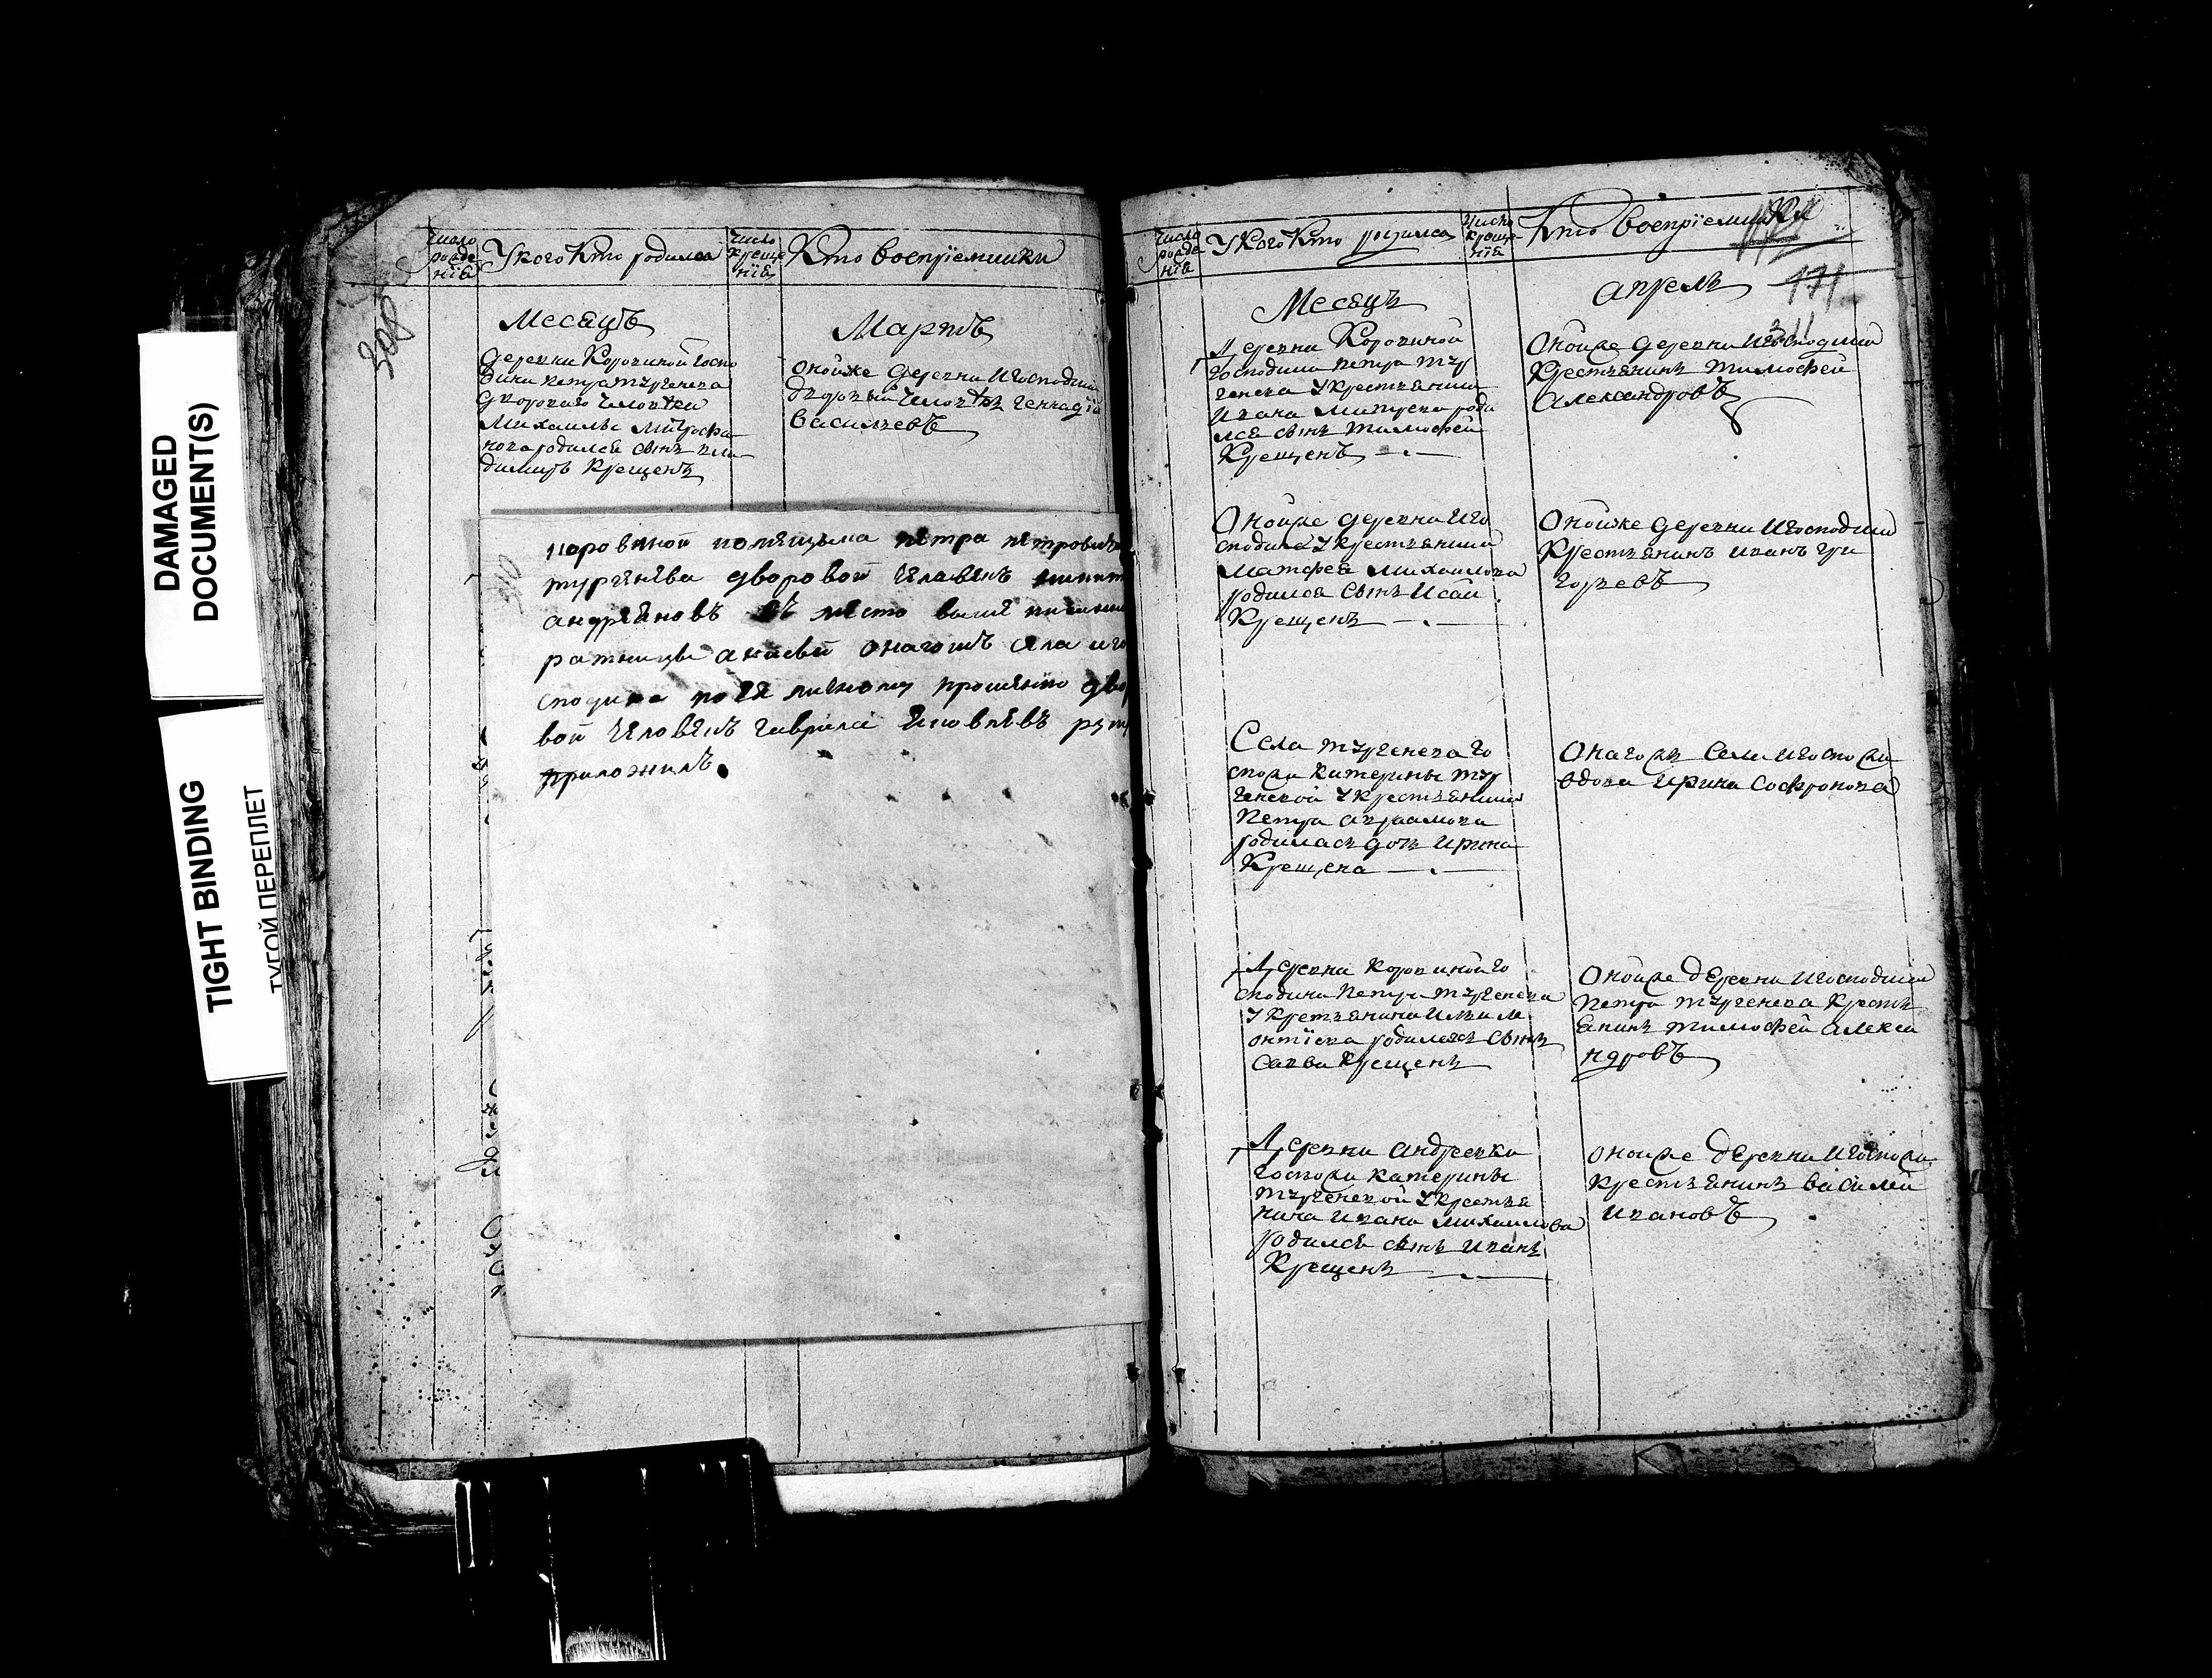 DAMAGED
DOCUMENT(S)
TIGHT BINDING
ТУГОЙ ПЕРЕПЛЕТ
308
Число рожде нїя
У кого кто родился
Число креще нїя
Кто воспрїемники
Месяцъ
Мартъ
деревни Коровиной госпо
дина петра тургенева
дворового человека
Михаилы митрофа
нова родился сынъ вла
димиръ крещенъ
оной же деревни и господина
дворовый человекъ геннадїй
Васильевъ
310
каровиной помещика петра петровича
тургенева дворовой человекъ
андреяновъ въ место выше
ратницы онагожъ села и го
сподина по ея личному прошению дво
вой человекъ гаврила яковлевъ
приложилъ
Число рожде нїя
У кого кто родился
Число креще нїя
Кто воспрїемники
171
311
Месяцъ
апрель
Деревни Коровиной
господина петра тур
генева у крестьянина
ивана роди
лся сынъ тимофей
Крещенъ
Оной же деревни и господина
Крестьянинъ тимофей
александровъ
Оной же деревни и го
сподина у крестьянина
матфея михаилова
родился сынъ исай
Крещенъ
Оной же деревни и господина
Крестьянинъ иванъ гри
горьевъ
Села тургенева го
спожи катерины тур
геневой у крестьянина
петра авраамова
родилась дочь ирина
Крещена
Онагожъ села и госпожи
вдова ирина софронова
Деревни коровиной го
сподина петра тургенева
у крестьянина
родился сынъ
савва крещенъ
Оной же деревни и господина
петра тургенева кресть
янинъ тимофей алекса
ндровъ
Деревни андреевки
госпожи катерины
тургеневой у крестья
нина ивана михаилова
родился сынъ иванъ
Крещенъ
оной же деревни и госпожи
крестьянинъ василей
ивановъ